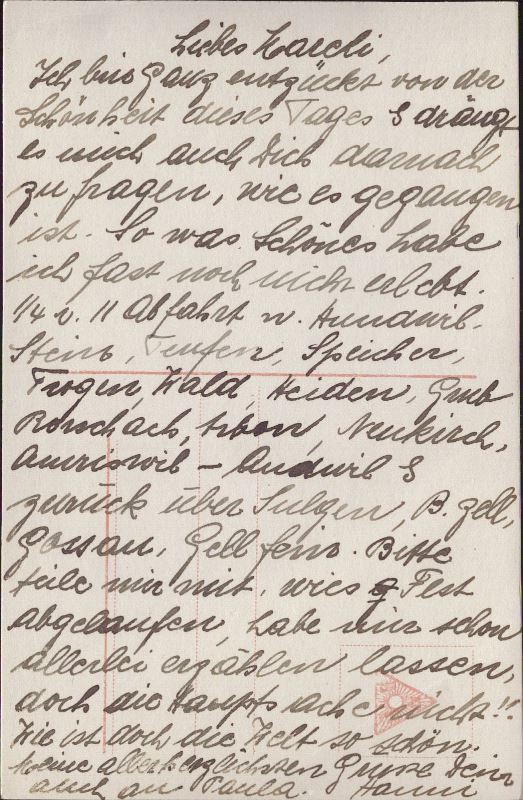 Liebes Marcli,
Ich bin Ganz entzückt von der
Schönheit dieses Tages & drängt
es mich auch Dich darnach
zu fragen, wie es gegangen
ist. So was Schönes habe
ich fast noch nicht erlebt.
1/4 v. 11 Abfahrt n. Hundwil.
Stein, Teufen, Speicher,
Trogen, Wald, Heiden, Grub
Rorschach, Arbon, Neukirch,
Amriswil – Andwil &
zurück über Sulgen, B. zell,
Gossau, Gell fein. Bitte
teile mir mit, wies Fest
abgelaufen, habe mir schon
allerlei erzählen lassen,
doch die Haupts ache nicht!!
Wie ist doch die Welt so schön.
Meine allerherzlichsten Grüsse Dein
auch an Paula. Hanni